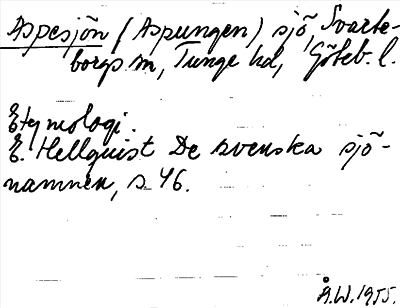 Aspesjön (Aspungen) sjö, Svarte-
borgs sn, Tunge hd, Göteb. l.
Etymologi.
E. Hellquist De svenska sjö-
namnen, s 46.
Å.W. 1955.